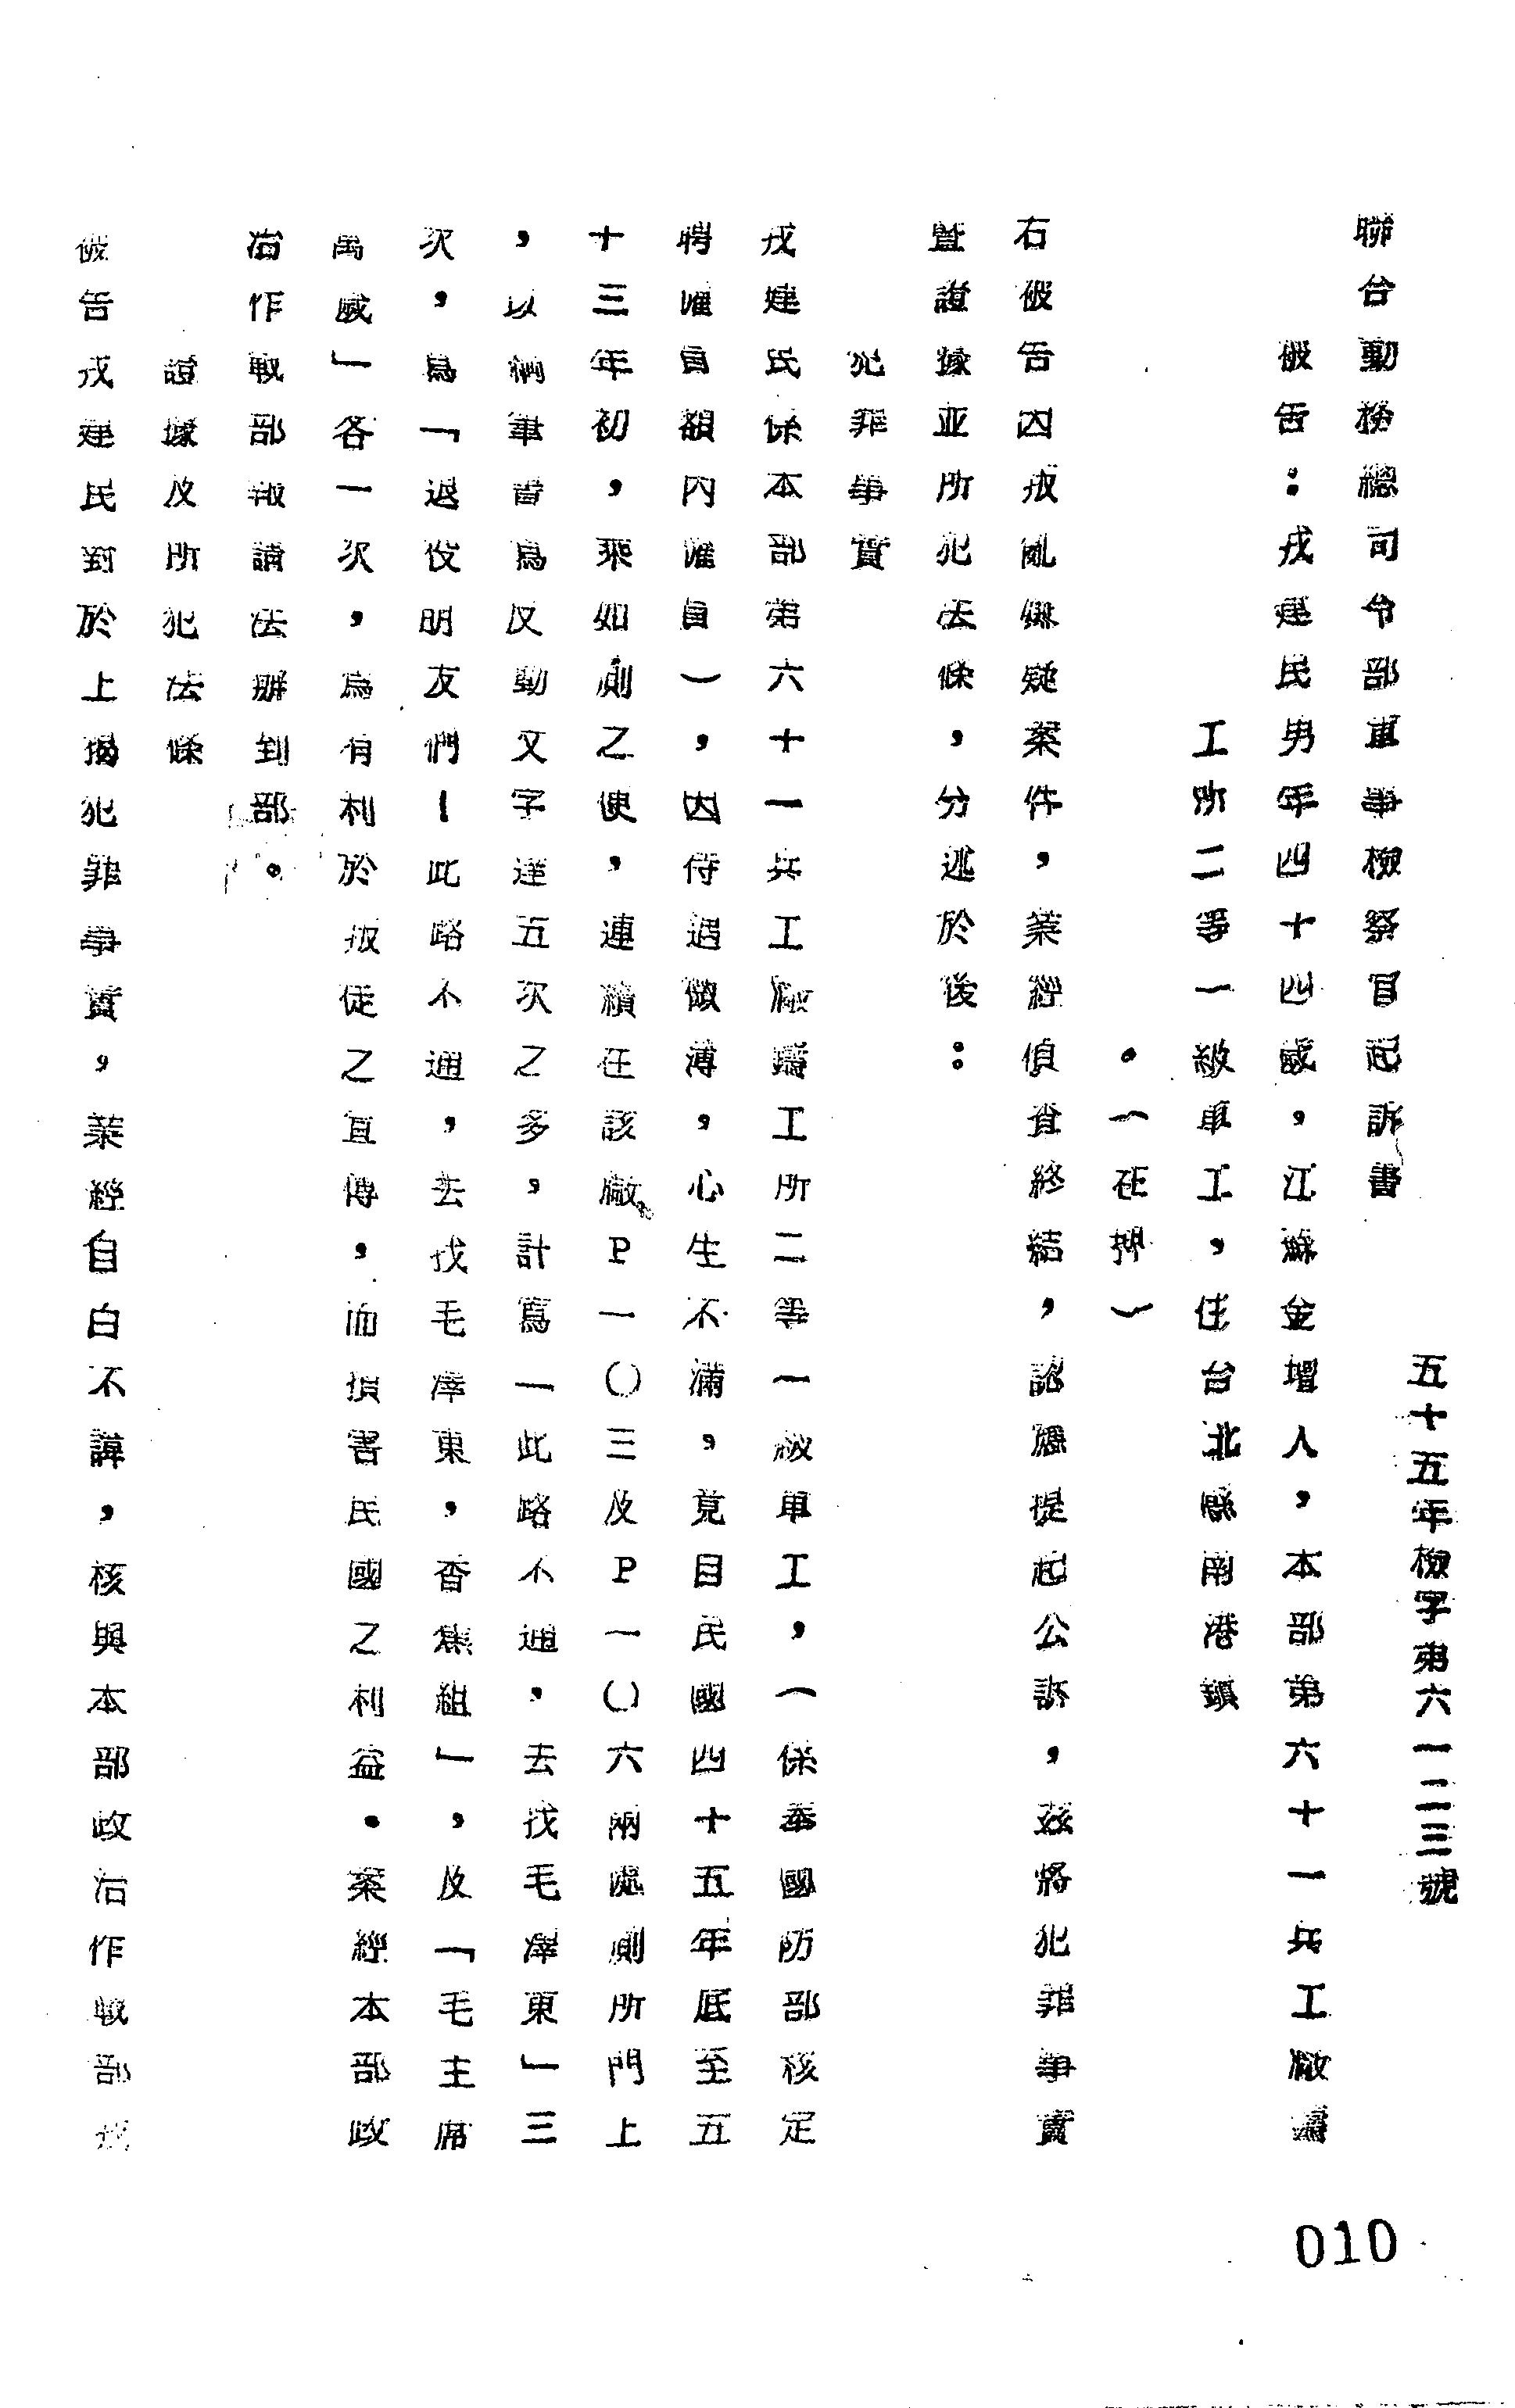 五十五年檢字第六一二三號
聯合勤務總司令部軍事檢察官起訴書
被告：戎建民男年四十四歲，江蘇金壇人，本部第六十一兵工廠鑄
工所二等一級車工，住台北縣南港鎮
。（在押）
右被告因叛亂嫌疑案件，業經偵查終結，認應提起公訴，茲將犯罪事實
暨證據並所犯法條，分述於後：
犯罪事實
戎建民係本部第六十一兵工廠鑄工所二等一級車工，（係奉國防部核定
聘僱員額內僱員），因待遇微薄，心生不滿，竟自民國四十五年底至五
十三年初，乘如廁之便，連續在該廠P一〇三及P一〇六兩處廁所門上
，以鋼筆書寫反動文字達五次之多，計寫「此路不通，去找毛澤東」三
次，寫「退役朋友們！此路不通，去找毛澤東，香焦組」，及「毛主席
萬歲」各一次，為有利於叛徒之宣傳，而損害民國之利益。案經本部政
治作戰部報請法辦到部。
證據及所犯法條
被告戎建民對於上揭犯罪事實，業經自白不諱，核與本部政治作戰部